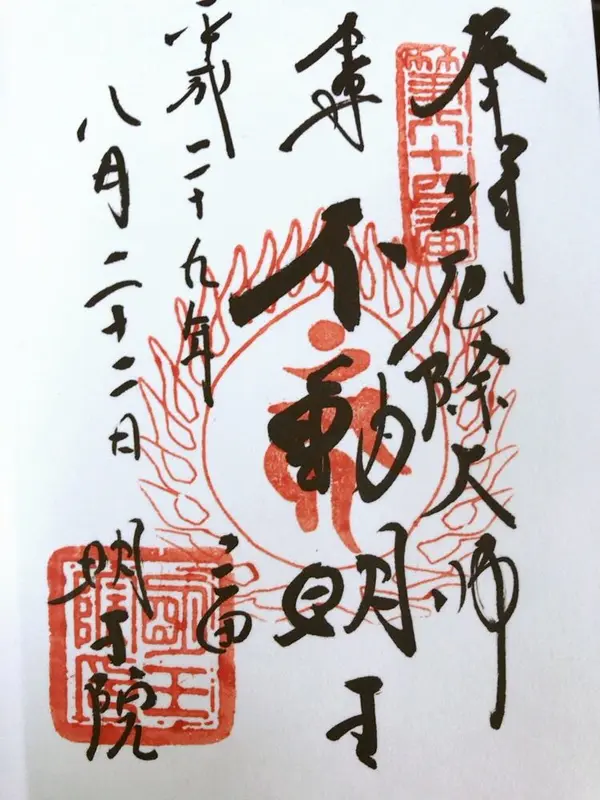 奉拝
第八十四番
厄除大師
尊
不動明王
平成二十九年
八月二十二日
三田
明王院